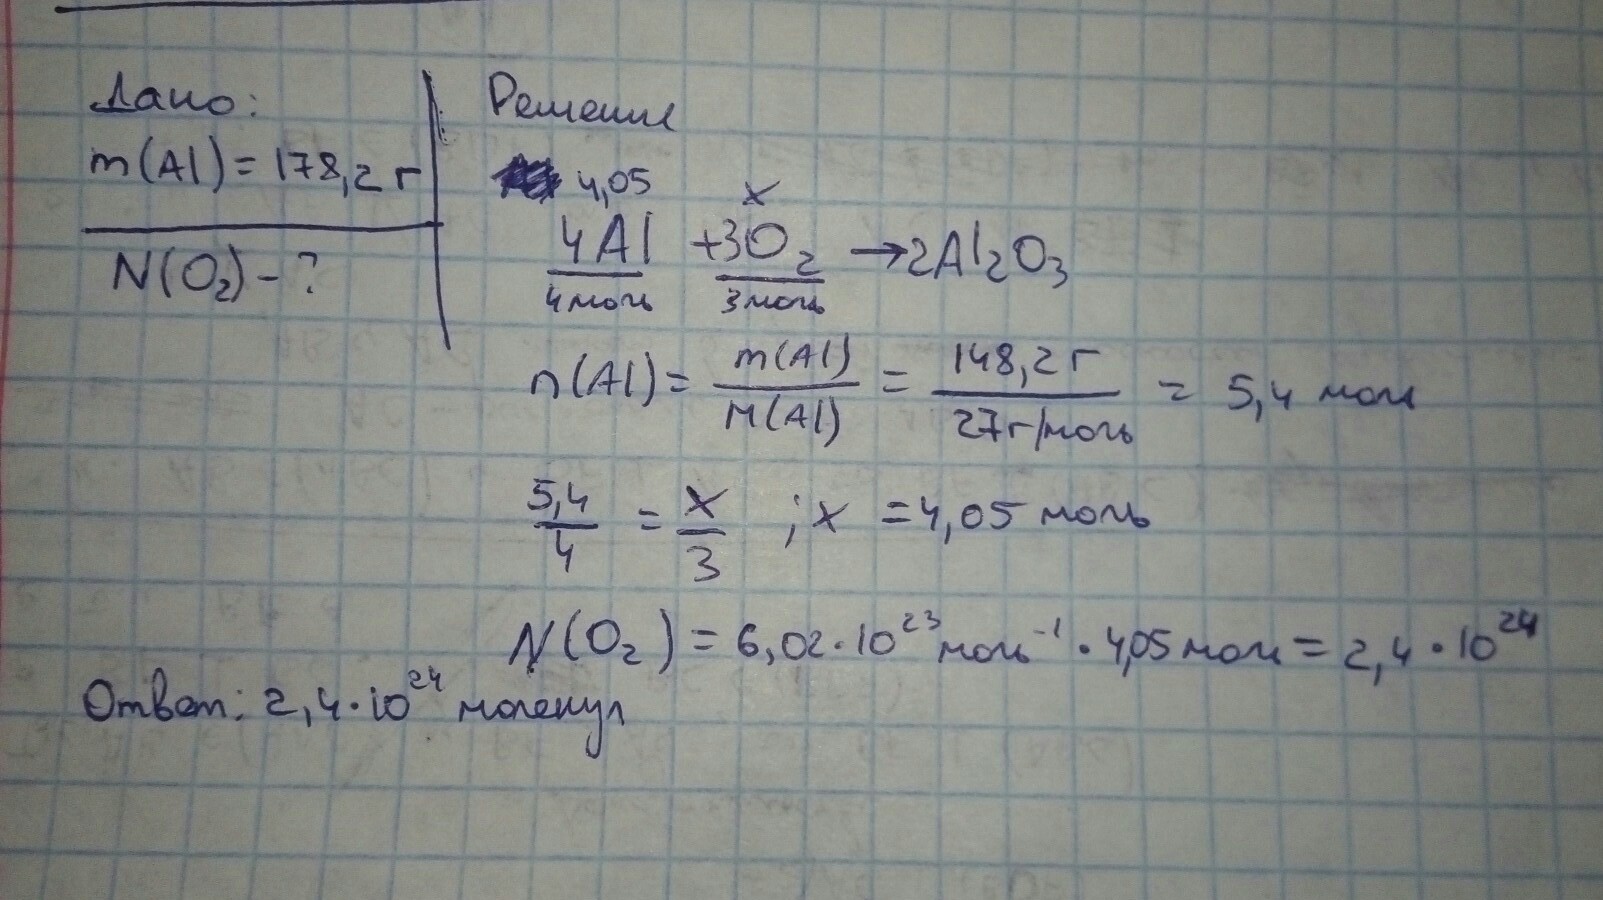 Дано:
m(Al) = 178,2 г
N(O₂) - ?
Решение
4,05 x
4Al + 3O₂ → 2Al₂O₃
4моль 3моль
n(Al) = m(Al) / M(Al) = 148,2 г / 27г/моль = 5,4 моль
5,4 / 4 = x / 3 ; x = 4,05 моль
N(O₂) = 6,02 · 10²³ моль⁻¹ · 4,05 моль = 2,4 · 10²⁴
Ответ: 2,4 · 10²⁴ молекул